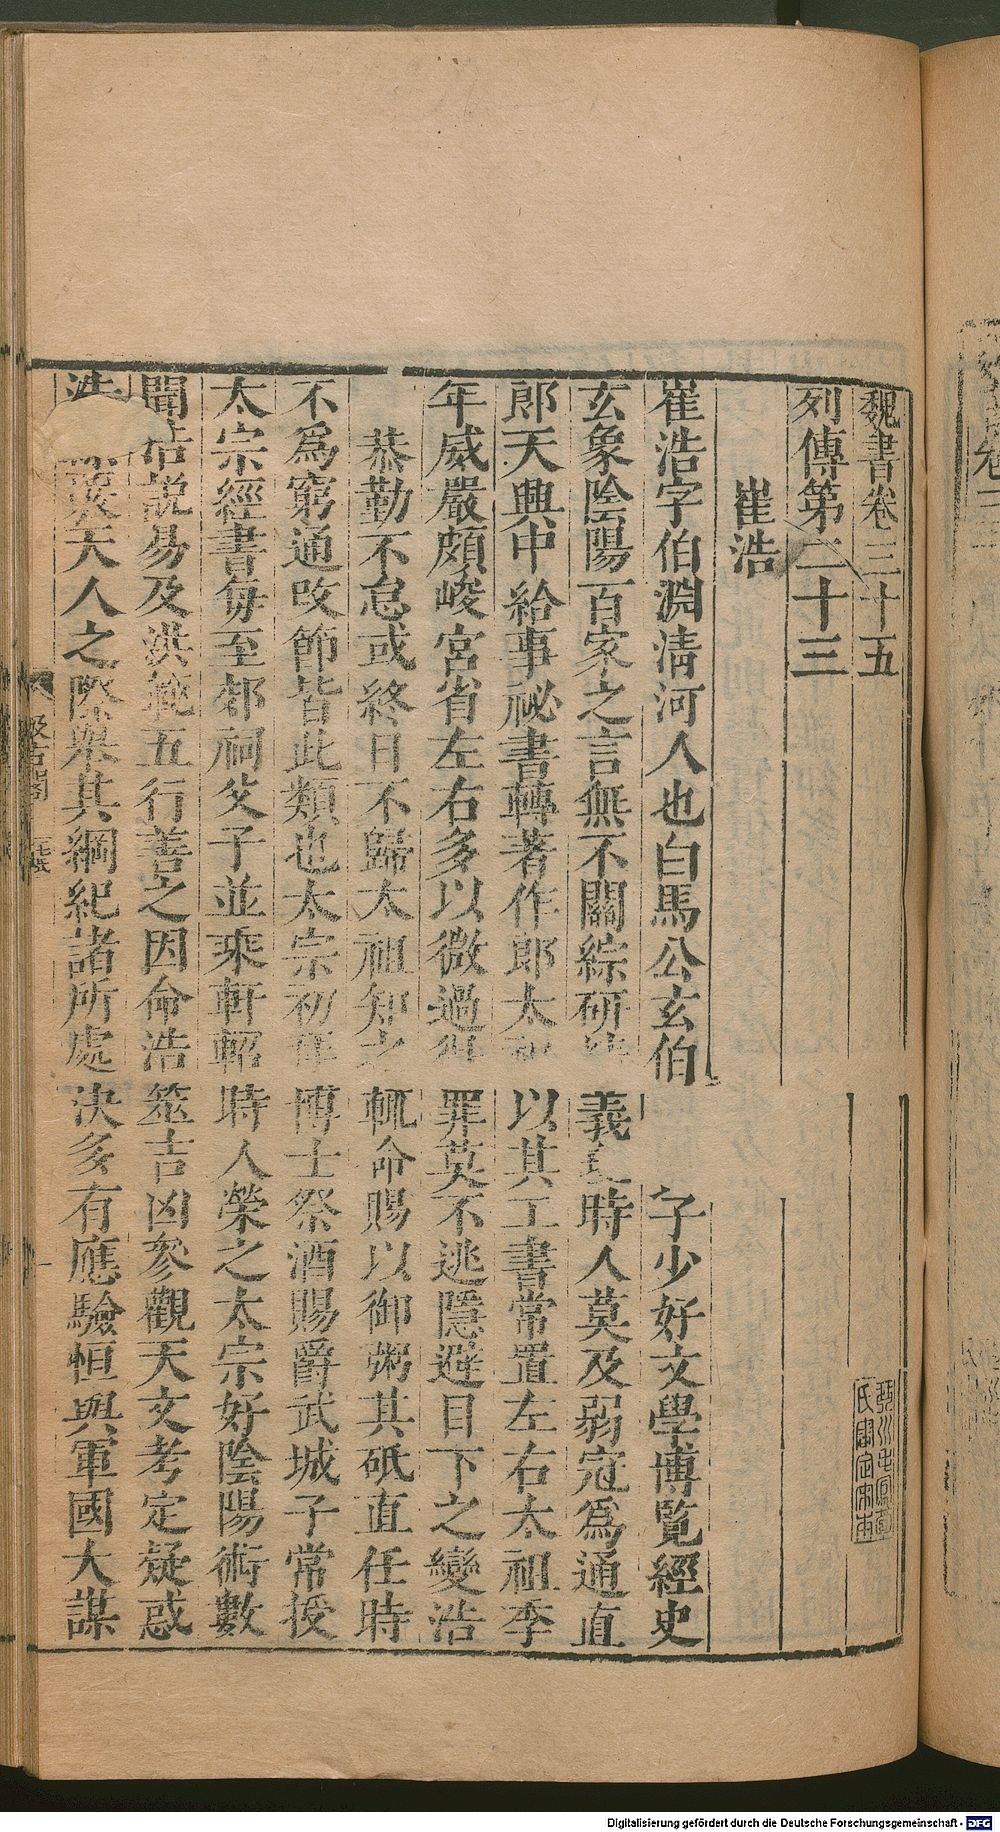 魏書卷三十五
列傳第二十三
崔浩
崔浩字伯淵清河人也白馬公玄伯 子少好文學博覽經史
玄象陰陽百家之言無不關綜研 義 時人莫及弱冠爲通直
郎天興中給事祕書轉著作郎太 以其工書常置左右太祖季
年威嚴頗峻宮省左右多以微過 罪莫不逃隱避目下之變浩
恭勤不怠或終日不歸太祖知之輒命賜以御粥其砥直任時
不爲窮通改節皆此類也太宗初 博士祭酒賜爵武城子常授
太宗經書每至郊祠父子並乘軒軺時人榮之太宗好陰陽術數
聞浩說易及洪範五行善之因命浩筮吉凶參觀天文考定疑惑
浩 天人之際舉其綱紀諸所處決多有應驗恒與軍國大謀
汲古閣
一
氏審定宋本
Digitalisierung gefördert durch die Deutsche Forschungsgemeinschaft - DFG